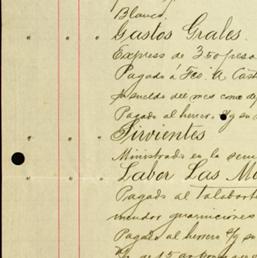 Blanco.
Gastos Grales.
Express de 350 pesos
Pagado á Fco. A Cast
su sueldo del mes como de
Pagado al herrero s/g su
Sirvientes
Ministrado en la sem
Labor Las M
Pagado al talabarte
mendar guarniciones
Pagado al herrero s/g su
de 15